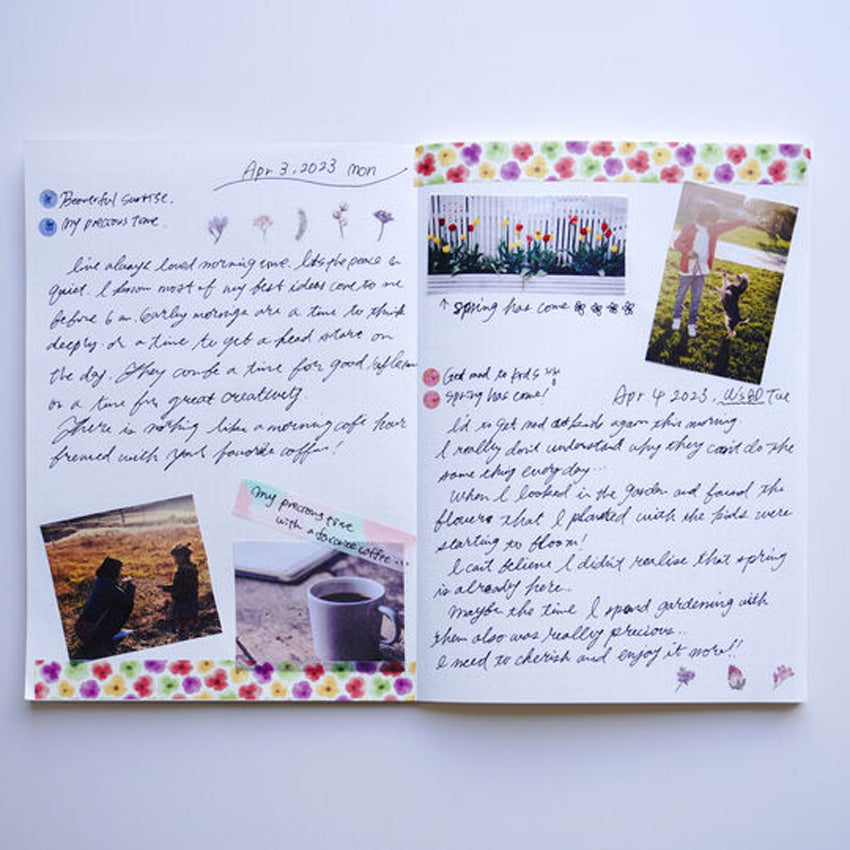 Apr 3, 2023 mon
Beautiful Sunrise.
My precious time
I've always loved morning time. It's the peace &
quiet. I know most of my best ideas come to me
before 6 am. Early mornings are a time to think
deeply or a time to get a head start on
the day. They can be a time for good
or a time for great creativity.
There is nothing like a morning cafe hour
with your favorite coffee!
My precious time
with a favorite coffee...
↑ Spring has come
Got mad to kids
Spring has come!
Apr 4 2023. Tue
I'd to get mad at kids again this morning.
I really don't understand why they can't do the
same thing everyday...
When I looked in the garden and found the
flowers that I planted with the kids were
starting to bloom!
I can't believe I didn't realise that spring
is already here..
Maybe the time I spend gardening with
them also was really precious..
I need to cherish and enjoy it more!!